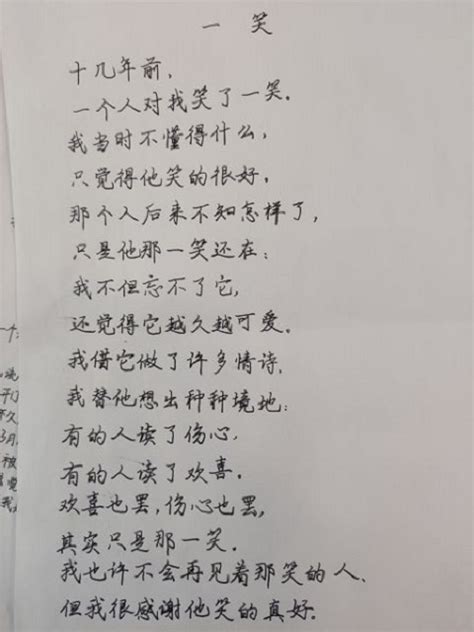 一 笑
十几年前，
一个人对我笑了一笑。
我当时不懂得什么，
只觉得他笑的很好。
那个人后来不知怎样了，
只是他那一笑还在：
我不但忘不了它，
还觉得它越久越可爱。
我借它做了许多情诗，
我替他想出种种境地：
有的人读了伤心，
有的人读了欢喜。
欢喜也罢，伤心也罢，
其实只是那一笑。
我也许不会再见着那笑的人、
但我很感谢他笑的真好。